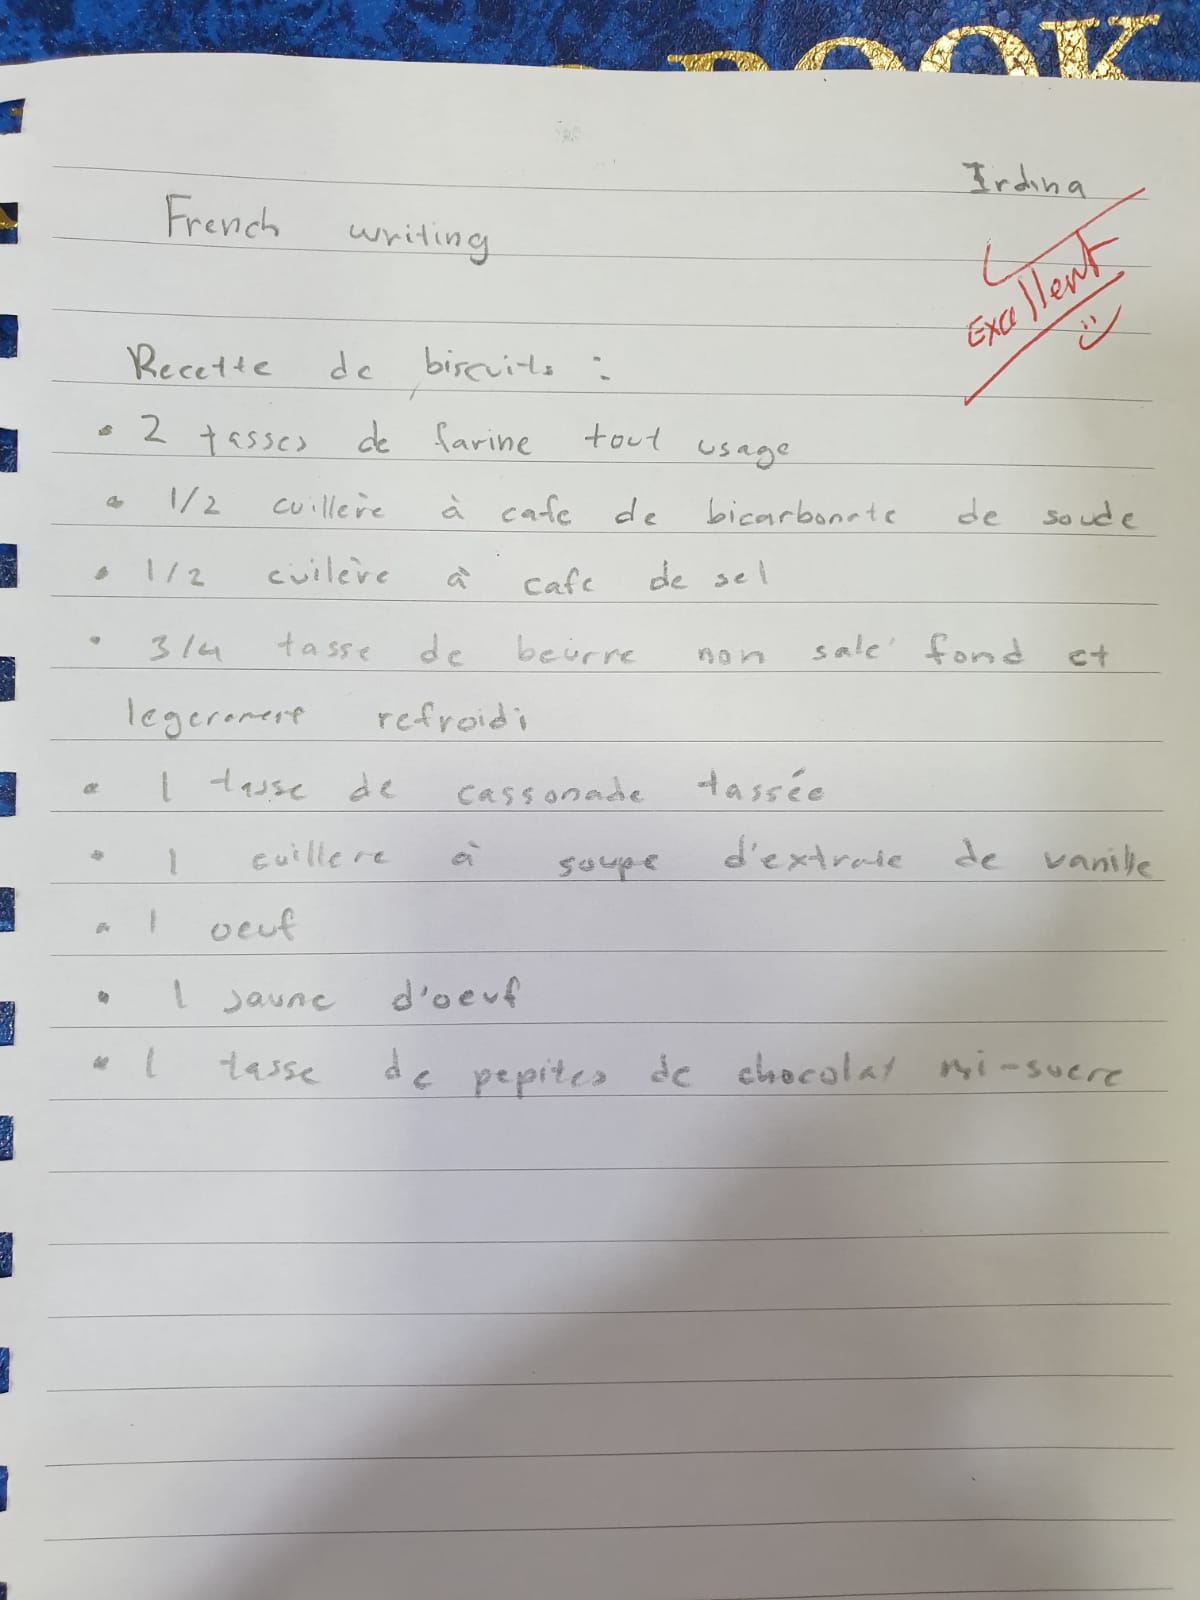 BOOK
Irdina
French writing
Excellent
Recette de biscuits :
• 2 tasses de farine tout usage
• 1/2 cuillère à cafe de bicarbonate de soude
• 1/2 cuilère à cafe de sel
• 3/4 tasse de beurre non salé fond et
legerement refroidi
• 1 tasse de cassonade tassée
• 1 cuillere à soupe d'extraie de vanille
• 1 oeuf
• 1 jaune d'oeuf
• 1 tasse de pepites de chocolat mi-sucre